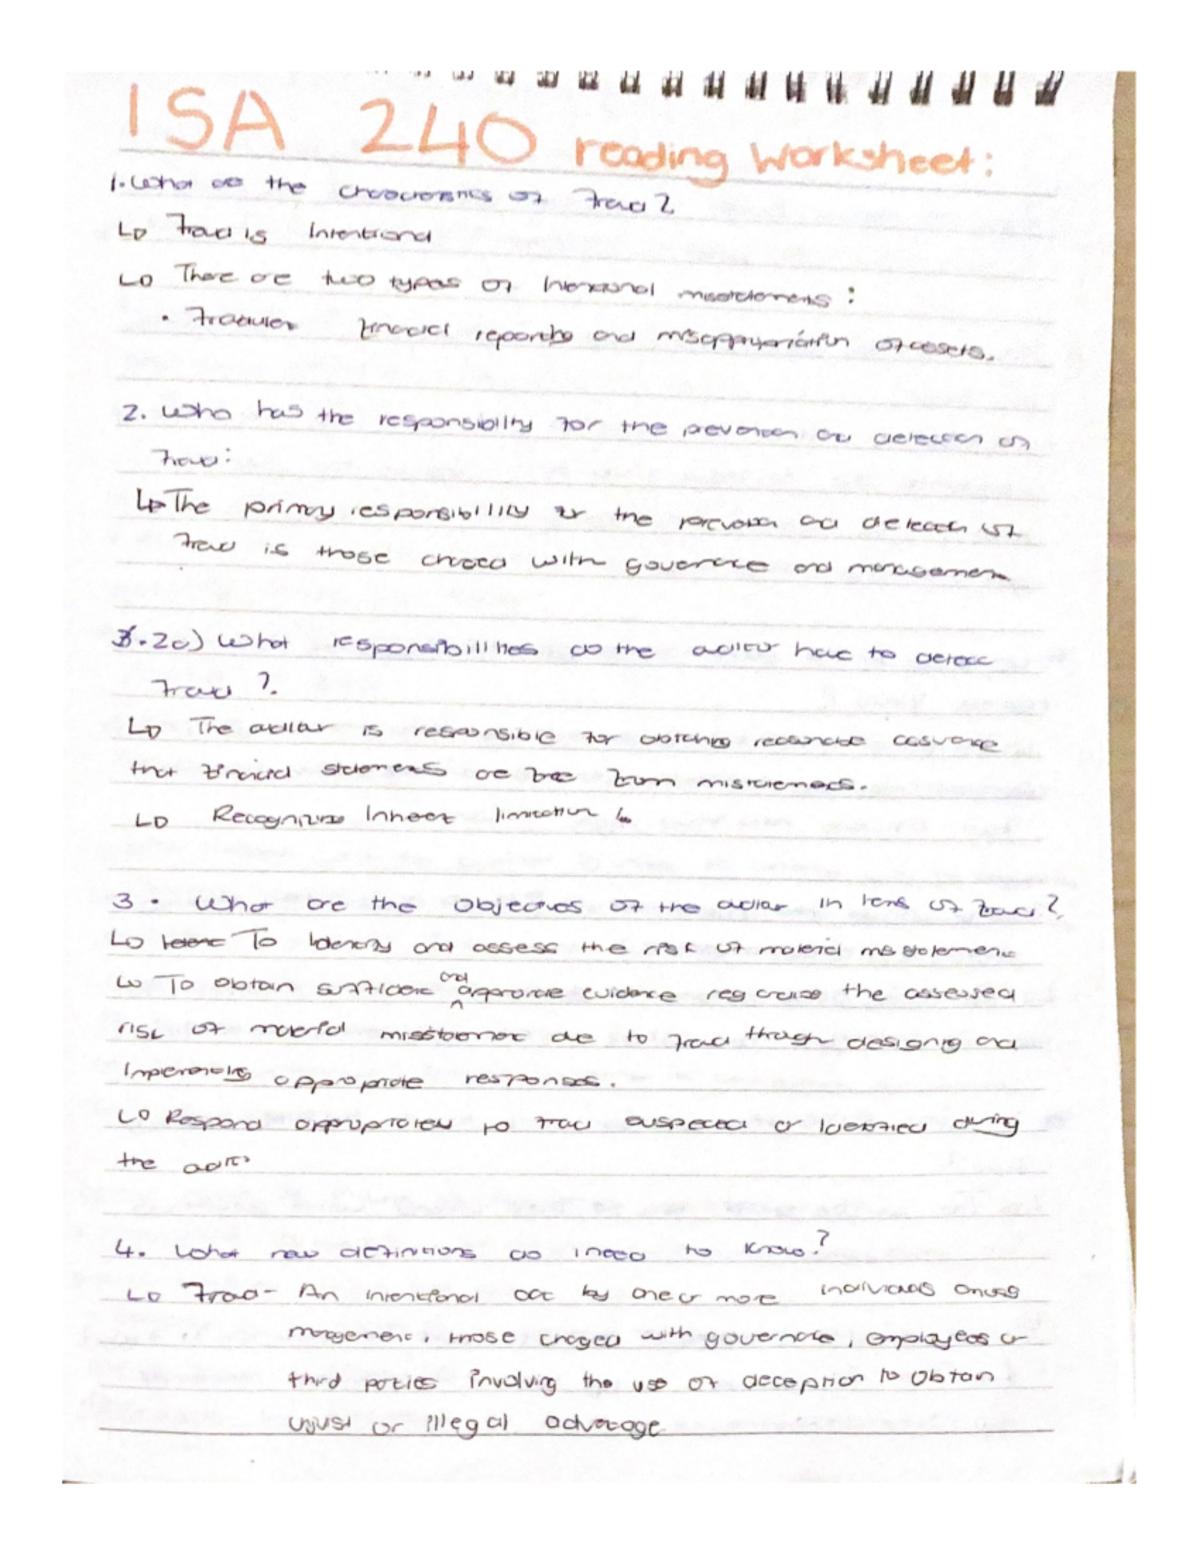 ISA 240 reading Worksheet:
1. What are the characteristics of Fraud?
Fraud is Intentional
There are two types of Intentional misstatements:
• Fraudulent financial reporting and misappropriation of assets.
2. Who has the responsibility for the prevention and detection of
Fraud:
The primary responsibility for the prevention and detection of
Fraud is those charged with governance and management
2a) What responsibilities do the auditor have to detect
Fraud?
The auditor is responsible for obtaining reasonable assurance
that financial statements are free from misstatements.
Recognizing Inherent limitation
3. What are the objectives of the auditor in terms of fraud?
To Identify and assess the risk of material misstatement
To obtain sufficient and appropriate evidence regarding the assessed
risk of material misstatement due to fraud through designing and
Implementing appropriate responses.
Respond appropriately to fraud suspected or Identified during
the audit
4. What new definitions do i need to know?
Fraud - An intentional act by one or more individuals among
management, those charged with governance, employees or
third parties involving the use of deception to obtain
unjust or illegal advantage